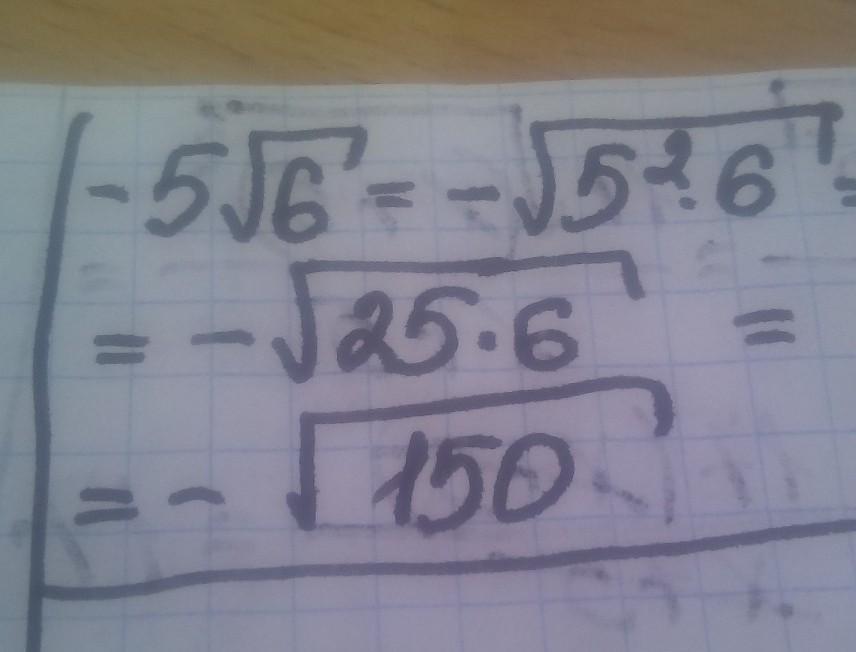 -5√6 = -√5²·6 =
= -√25·6 =
= -√150